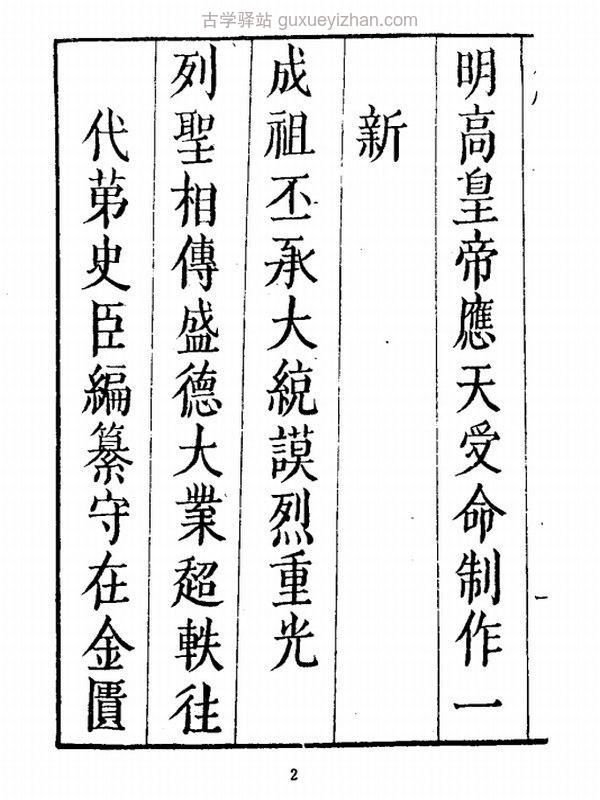 古学驿站 guxueyizhan.com
明高皇帝應天受命制作一
新
成祖丕承大統謨烈重光
列聖相傳盛德大業超軼往
代苐史臣編纂守在金匱
2